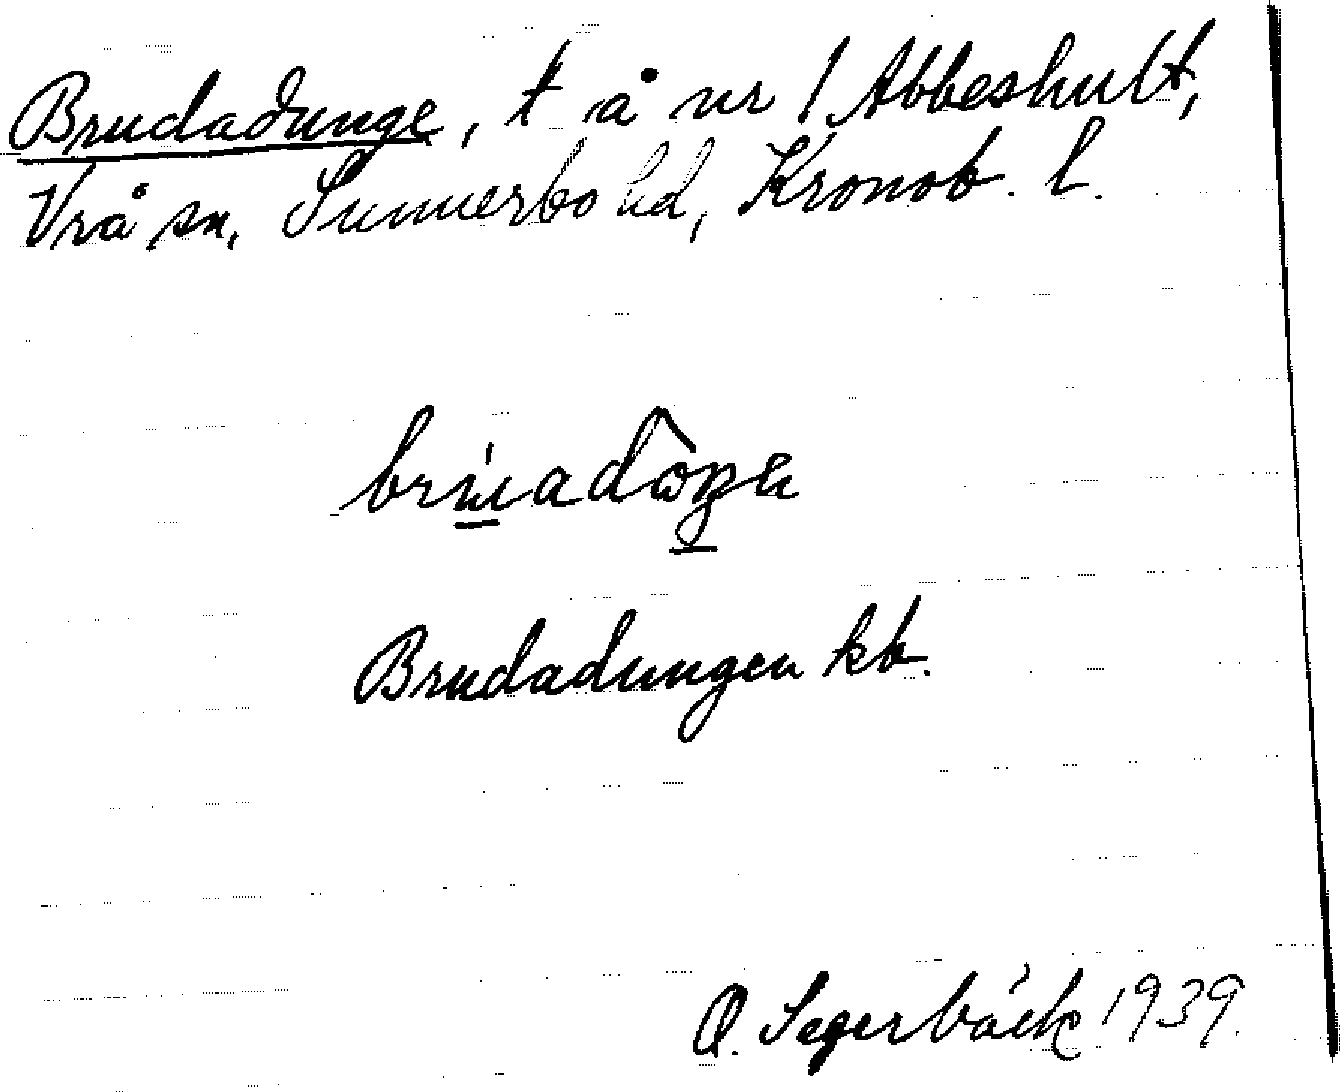 Brudadunge, t å nr 1 Abbeshult,
Vrå sn, Sunnerbo hd, Kronob. l.
Brudadungen kb.
O. Segerbäck 1939.